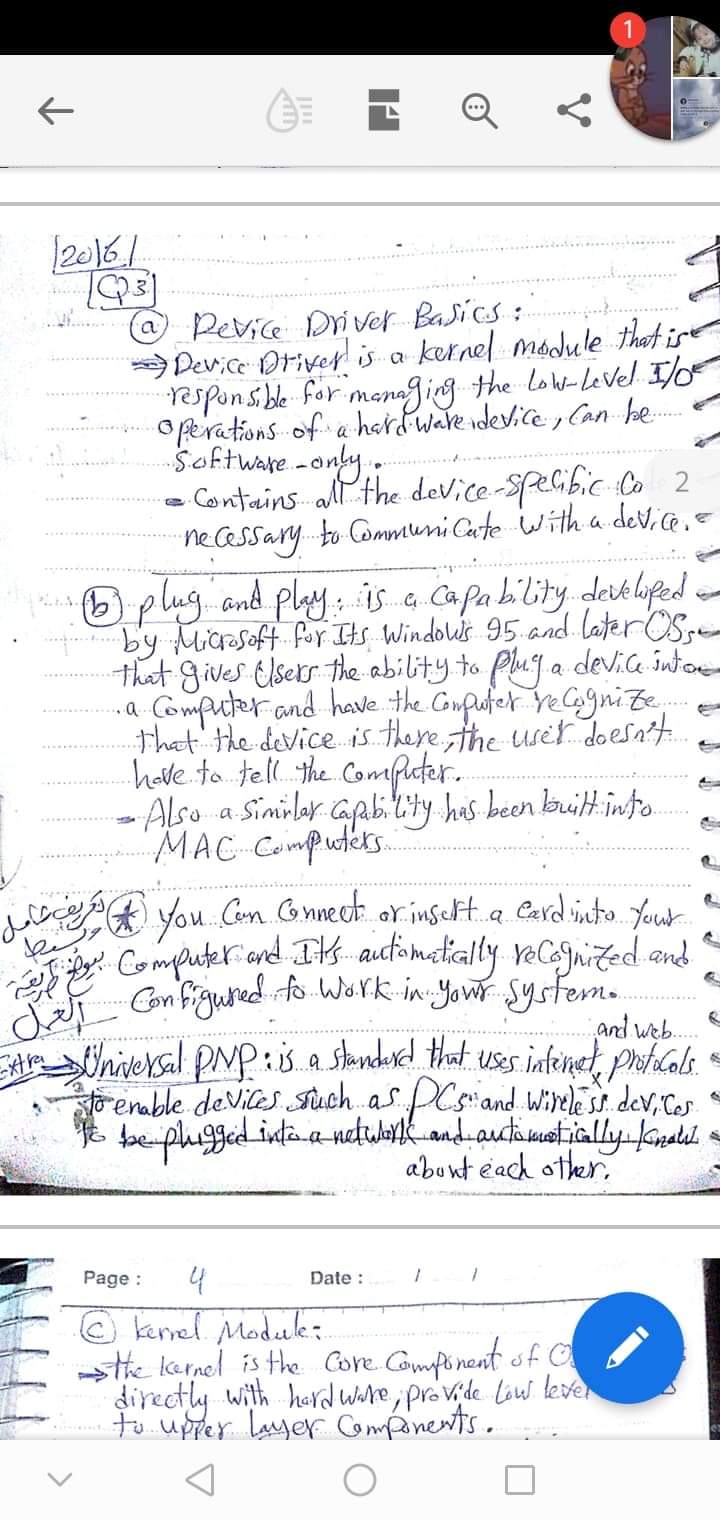 1
2016
Q3
(a) Device Driver Basics:
⇒ Device Driver is a kernel module that is
responsible for managing the Low-Level I/O
operations of a hardware device, Can be
Software-only.
- Contains all the device-specific Co
2
necessary to Communicate With a device.
(b) plug and play: is a Capability developed
by Microsoft for Its Windows 95 and later OSs
that gives Users the ability to Plug a device into
a Computer and have the Computer recognize
that the device is there, the user doesn't
have to tell the Computer.
- Also a similar Capability has been built into
MAC Computers.
* You Can Connect or insert a Card into Your
Computer and It's automatically recognized and
العمل
Configured to Work in your System.
and web
Extra → Universal PNP: is a standard that uses internet protocols
to enable devices such as PCs and Wireless devices
to be plugged into a network and automatically Know
about each other.
Page : 4 Date : / /
(c) Kernel Module:
→ the kernel is the Core Component of O
directly with hardware, provide Low leve
to upper Layer Components.